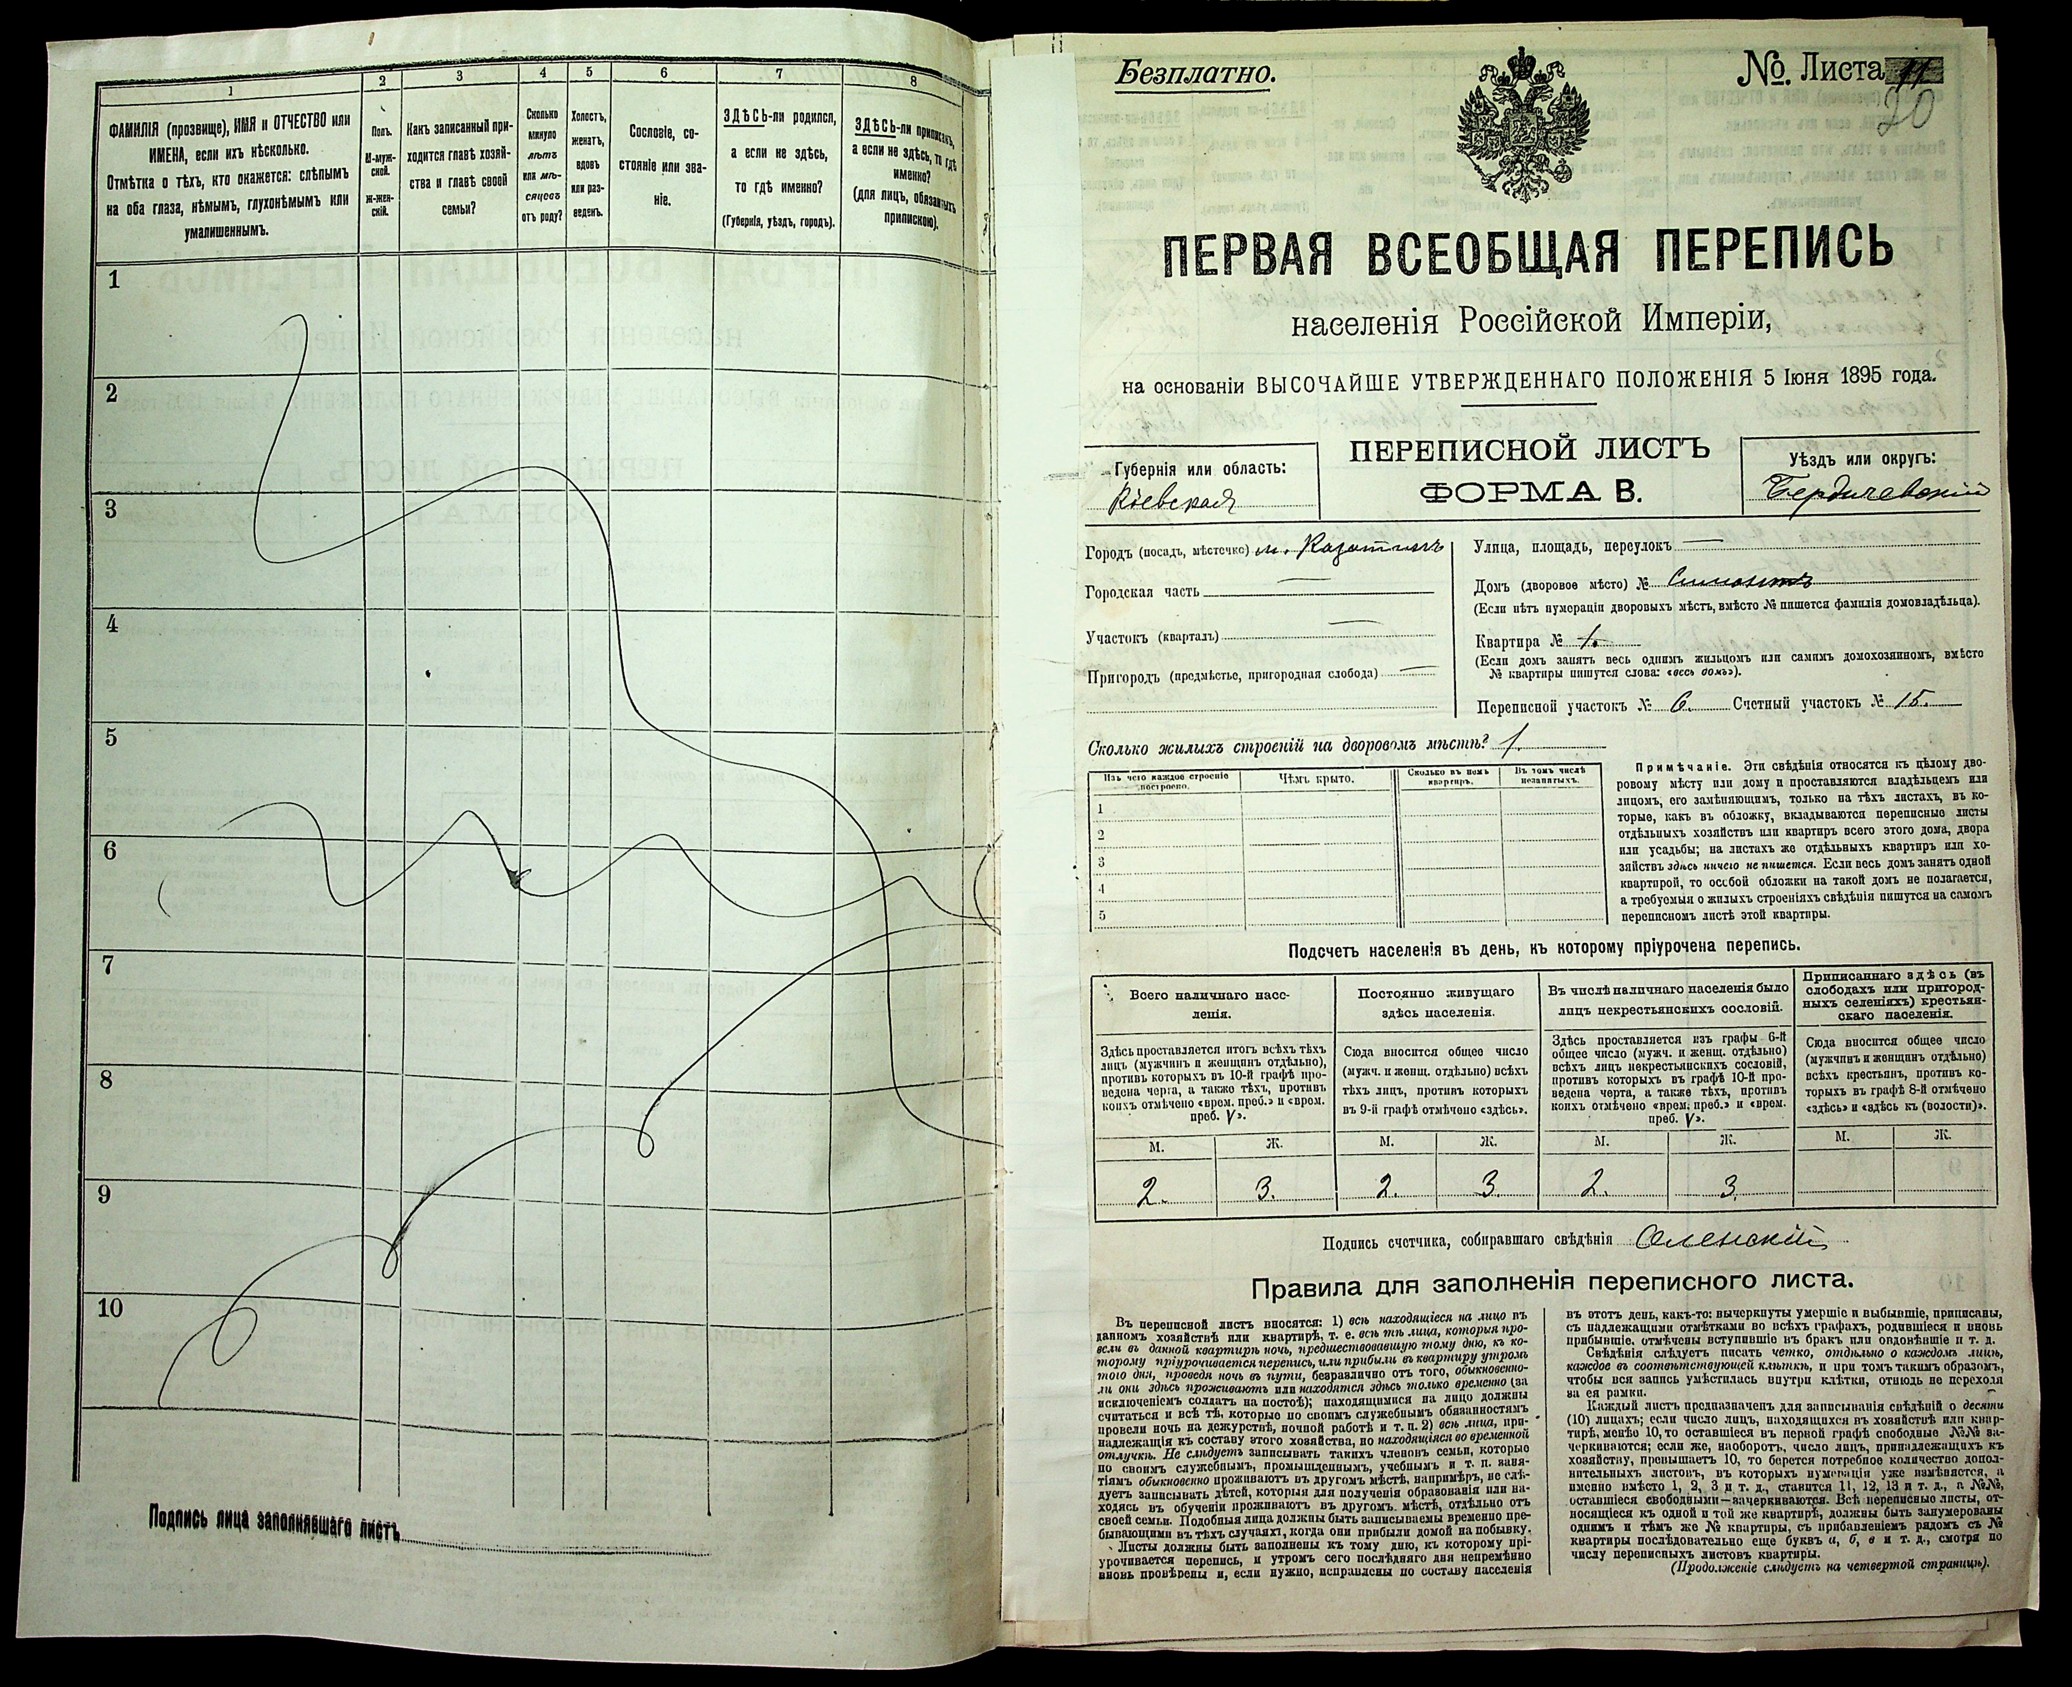 1
2
3
4
5
6
7
8
ФАМИЛІЯ (прозвище), ИМЯ и ОТЧЕСТВО или
ИМЕНА, если ихъ нѣсколько.
Отмѣтка о тѣхъ, кто окажется: слѣпымъ
на оба глаза, нѣмымъ, глухонѣмымъ или
умалишеннымъ.
Полъ.
М-муж-
ской.
Ж-жен-
скій.
Какъ записанный при-
ходится главѣ хозяй-
ства и главѣ своей
семьи?
Сколько
минуло
лѣтъ
или мѣ-
сяцевъ
отъ роду?
Холостъ,
женатъ,
вдовъ
или раз-
веденъ.
Сословіе, со-
стояніе или зва-
ніе.
ЗДѢСЬ-ли родился,
а если не здѣсь,
то гдѣ именно?
(Губернія, уѣздъ, городъ).
ЗДѢСЬ-ли приписанъ,
а если не здѣсь, то гдѣ
именно?
(для лицъ, обязанныхъ
припискою).
1
2
3
4
5
6
7
8
9
10
Подпись лица заполнявшаго листъ
Безплатно.
№ Листа 11
20
ПЕРВАЯ ВСЕОБЩАЯ ПЕРЕПИСЬ
населенія Россійской Имперіи,
на основаніи ВЫСОЧАЙШЕ УТВЕРЖДЕННАГО ПОЛОЖЕНІЯ 5 Іюня 1895 года.
Губернія или область:
Кіевская
ПЕРЕПИСНОЙ ЛИСТЪ
ФОРМА В.
Уѣздъ или округъ:
Бердичевскій
Городъ (посадъ, мѣстечко) м. Казатинъ
Городская часть
Участокъ (кварталъ)
Пригородъ (предмѣстье, пригородная слобода)
Улица, площадь, переулокъ
Домъ (дворовое мѣсто) №
(Если нѣтъ нумераціи дворовыхъ мѣстъ, вмѣсто № пишется фамилія домовладѣльца).
Квартира № 1.
(Если домъ занятъ весь однимъ жильцомъ или самимъ домохозяиномъ, вмѣсто
№ квартиры пишутся слова: «весь домъ»).
Переписной участокъ № 6. Счетный участокъ № 15.
Сколько жилыхъ строеній на дворовомъ мѣстѣ? 1.
Изъ чего каждое строеніе
построено.
Чѣмъ крыто.
Сколько въ немъ
квартиръ.
Въ томъ числѣ
незанятыхъ.
1
2
3
4
5
Примѣчаніе. Эти свѣдѣнія относятся къ цѣлому дво-
ровому мѣсту или дому и проставляются владѣльцемъ или
лицомъ, его замѣняющимъ, только на тѣхъ листахъ, въ ко-
торые, какъ въ обложку, вкладываются переписные листы
отдѣльныхъ хозяйствъ или квартиръ всего этого дома, двора
или усадьбы; на листахъ же отдѣльныхъ квартиръ или хо-
зяйствъ здѣсь ничего не пишется. Если весь домъ занятъ одной
квартирой, то особой обложки на такой домъ не полагается,
а требуемыя о жилыхъ строеніяхъ свѣдѣнія пишутся на самомъ
переписномъ листѣ этой квартиры.
Подсчетъ населенія въ день, къ которому пріурочена перепись.
Всего наличнаго насе-
ленія.
Постоянно живущаго
здѣсь населенія.
Въ числѣ наличнаго населенія было
лицъ некрестьянскихъ сословій.
Приписаннаго здѣсь (въ
слободахъ или пригород-
ныхъ селеніяхъ) крестьян-
скаго населенія.
Здѣсь проставляется итогъ всѣхъ тѣхъ
лицъ (мужчинъ и женщинъ отдѣльно),
противъ которыхъ въ 10-й графѣ про-
ведена черта, а также тѣхъ, противъ
коихъ отмѣчено «врем. преб.» и «врем.
преб. V».
Сюда вносится общее число
(мужч. и женщ. отдѣльно) всѣхъ
тѣхъ лицъ, противъ которыхъ
въ 9-й графѣ отмѣчено «здѣсь».
Здѣсь проставляется изъ графы 6-й
общее число (мужч. и женщ. отдѣльно)
всѣхъ лицъ некрестьянскихъ сословій,
противъ которыхъ въ графѣ 10-й про-
ведена черта, а также тѣхъ, противъ
коихъ отмѣчено «врем. преб.» и «врем.
преб. V».
Сюда вносится общее число
(мужчинъ и женщинъ отдѣльно)
всѣхъ крестьянъ, противъ ко-
торыхъ въ графѣ 8-й отмѣчено
«здѣсь» и «здѣсь къ (волости)».
М. Ж. М. Ж. М. Ж. М. Ж.
2. 3. 2. 3. 2. 3.
Подпись счетчика, собиравшаго свѣдѣнія
Правила для заполненія переписного листа.
Въ переписной листъ вносятся: 1) всѣ находящіеся на лицо въ
данномъ хозяйствѣ или квартирѣ, т. е. всѣ тѣ лица, которыя про-
вели въ данной квартирѣ ночь, предшествовавшую тому дню, къ ко-
торому пріурочивается перепись, или прибыли въ квартиру утромъ
того дня, проведя ночь въ пути, безразлично отъ того, обыкновенно-
ли они здѣсь проживаютъ или находятся здѣсь только временно (за
исключеніемъ солдатъ на постоѣ); находящимися на лицо должны
считаться и всѣ тѣ, которые по своимъ служебнымъ обязанностямъ
провели ночь на дежурствѣ, ночной работѣ и т. п. 2) всѣ лица, при-
надлежащія къ составу этого хозяйства, но находящіяся во временной
отлучкѣ. Не слѣдуетъ записывать такихъ членовъ семьи, которые
по своимъ служебнымъ, промышленнымъ, учебнымъ и т. п. заня-
тіямъ обыкновенно проживаютъ въ другомъ мѣстѣ, напримѣръ, не слѣ-
дуетъ записывать дѣтей, которыя для полученія образованія или на-
ходясь въ обученіи проживаютъ въ другомъ мѣстѣ, отдѣльно отъ
своей семьи. Подобныя лица должны быть записываемы временно пре-
бывающими въ тѣхъ случаяхъ, когда они прибыли домой на побывку.
Листы должны быть заполнены къ тому дню, къ которому прі-
урочивается перепись, и утромъ сего послѣдняго дня непремѣнно
вновь провѣрены и, если нужно, исправлены по составу населенія
въ этотъ день, какъ-то: вычеркнуты умершіе и выбывшіе, приписаны,
съ надлежащими отмѣтками во всѣхъ графахъ, родившіеся и вновь
прибывшіе, отмѣчены вступившіе въ бракъ или овдовѣвшіе и т. д.
Свѣдѣнія слѣдуетъ писать четко, отдѣльно о каждомъ лицѣ,
каждое въ соотвѣтствующей клѣткѣ, и при томъ такимъ образомъ,
чтобы вся запись умѣстилась внутри клѣтки, отнюдь не переходя
за ея рамки.
Каждый листъ предназначенъ для записыванія свѣдѣній о десяти
(10) лицахъ; если число лицъ, находящихся въ хозяйствѣ или квар-
тирѣ, менѣе 10, то оставшіеся въ первой графѣ свободные №№ за-
черкиваются; если же, наоборотъ, число лицъ, принадлежащихъ къ
хозяйству, превышаетъ 10, то берется потребное количество допол-
нительныхъ листовъ, въ которыхъ нумерація уже измѣняется, а
именно вмѣсто 1, 2, 3 и т. д., ставится 11, 12, 13 и т. д., а №№,
оставшіеся свободными—зачеркиваются. Всѣ переписные листы, от-
носящіеся къ одной и той же квартирѣ, должны быть занумерованы
однимъ и тѣмъ же № квартиры, съ прибавленіемъ рядомъ съ №
квартиры послѣдовательно еще буквъ а, б, в и т. д., смотря по
числу переписныхъ листовъ квартиры.
(Продолженіе слѣдуетъ на четвертой страницѣ).